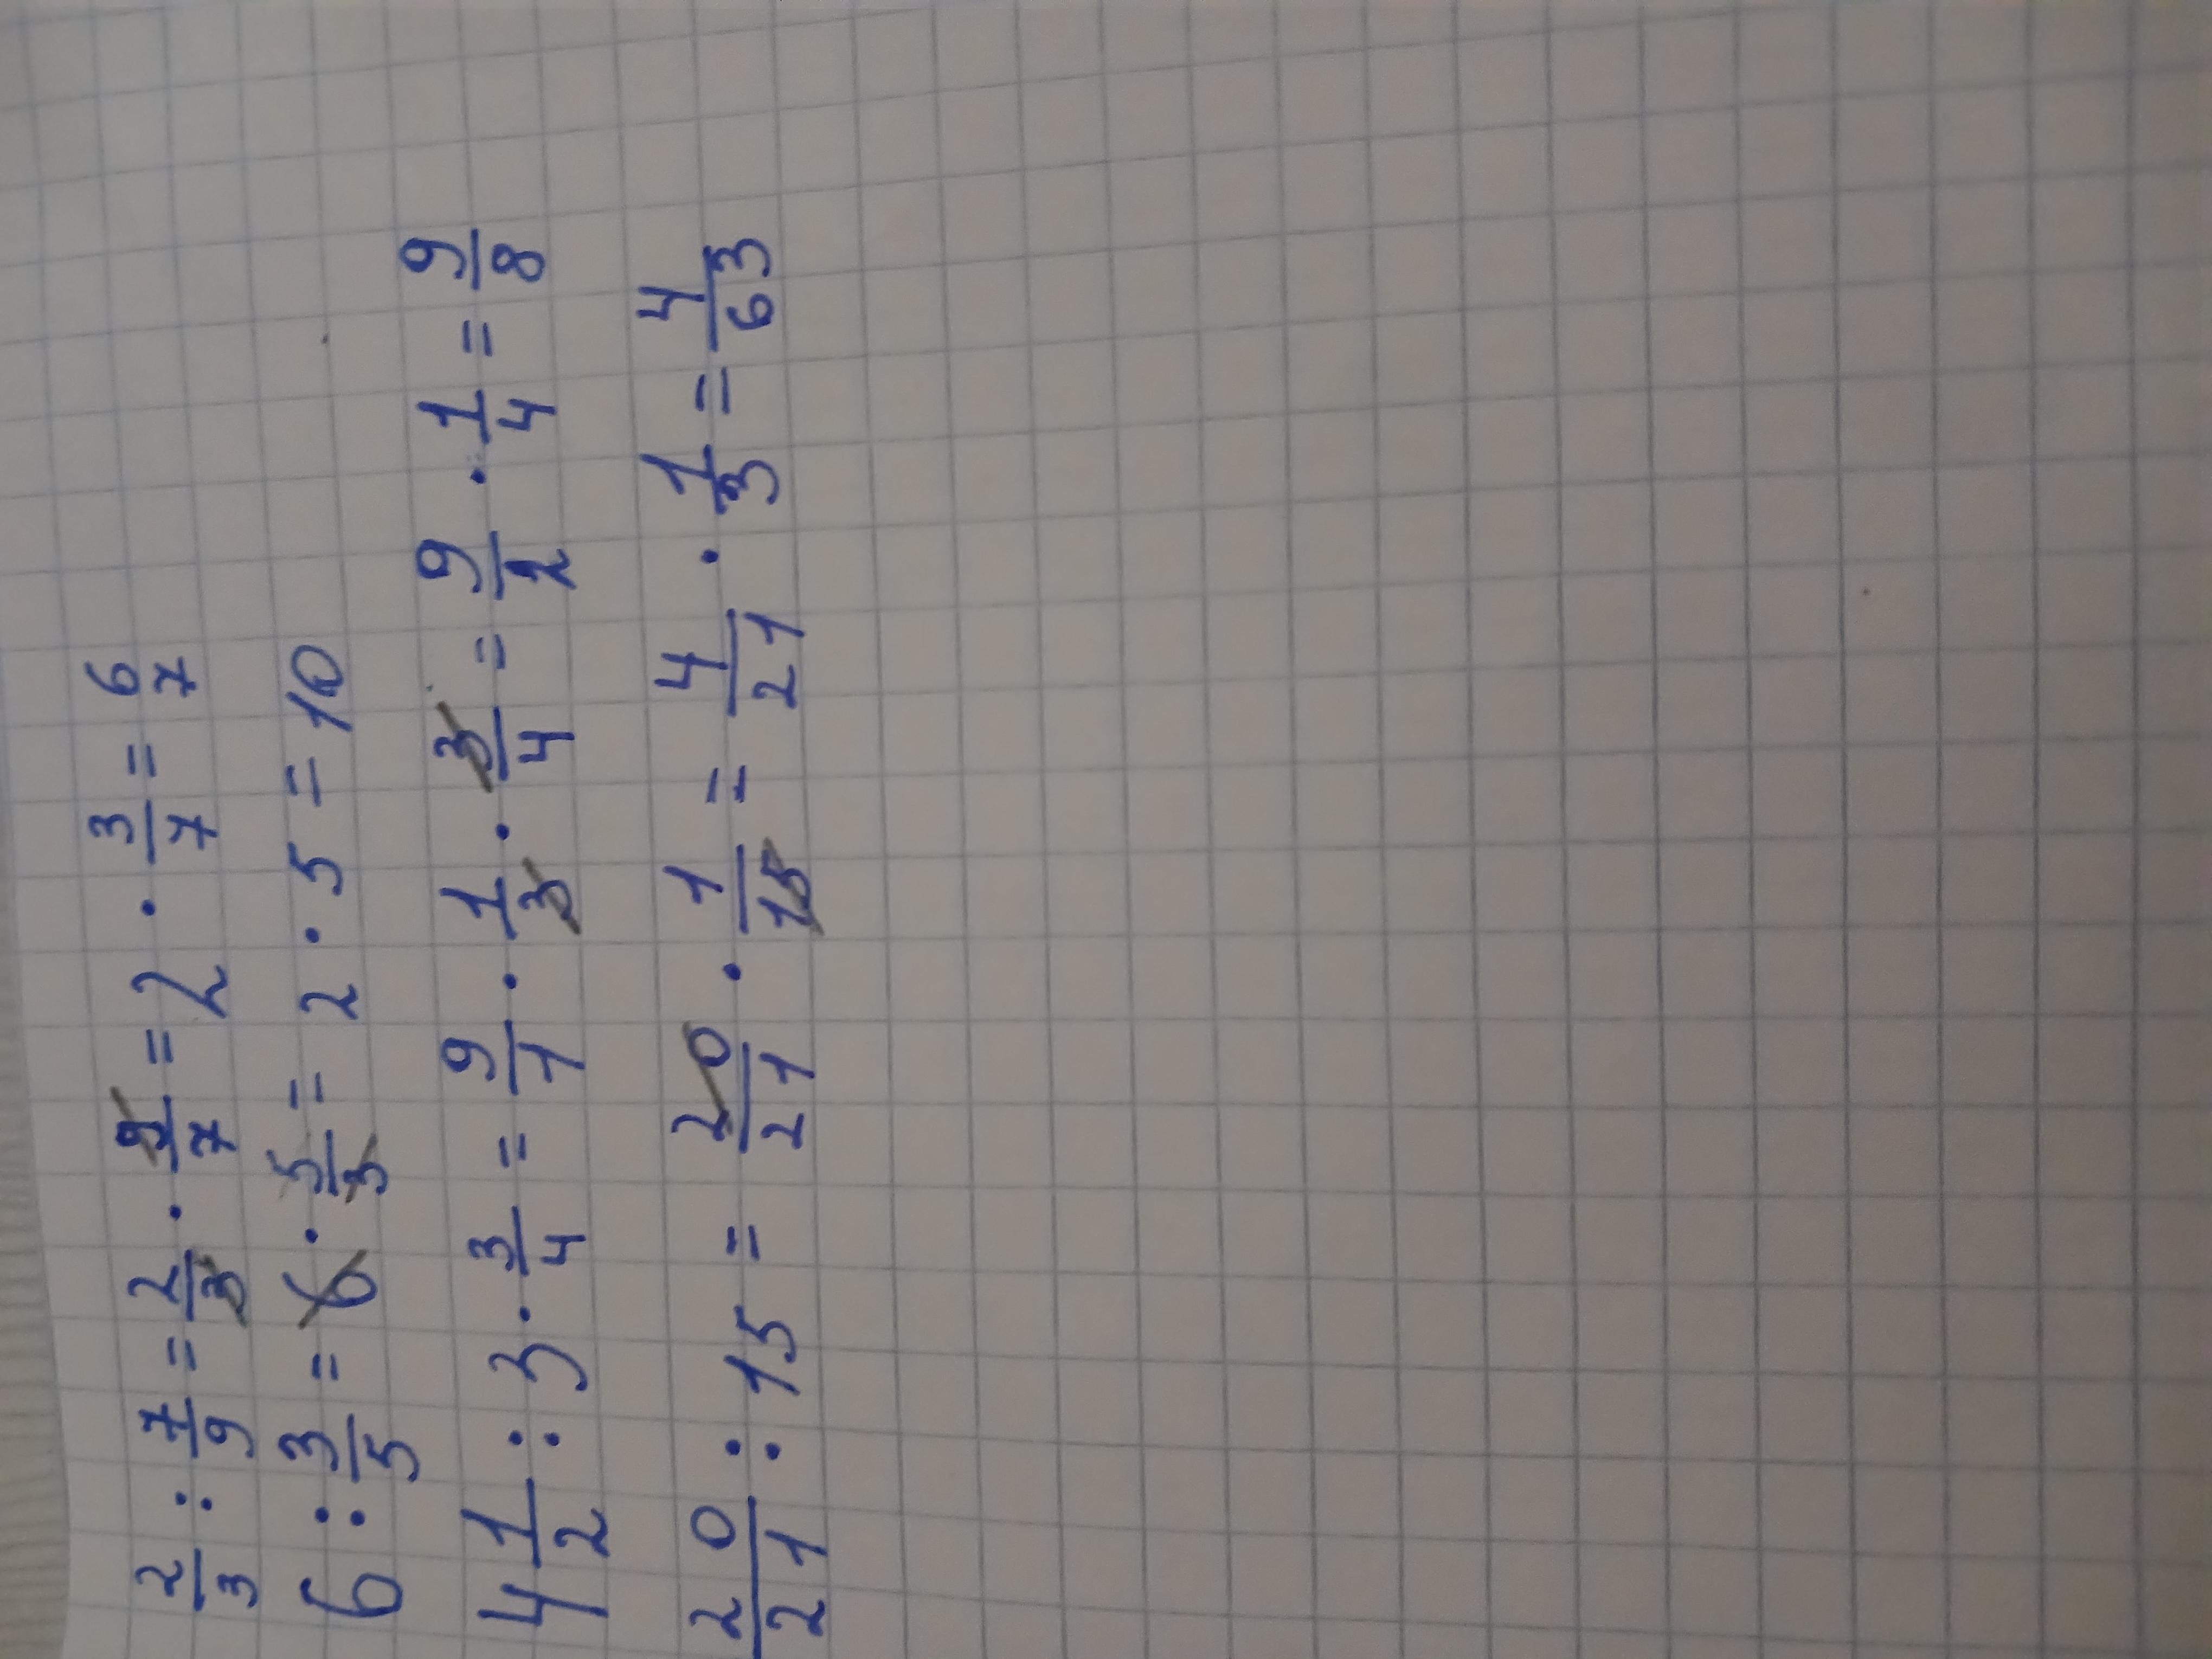 2/3 : 7/9 = 2/3 · 9/7 = 2 · 3/7 = 6/7
6 : 3/5 = 6 · 5/3 = 2 · 5 = 10
4 1/2 : 3 · 3/4 = 9/1 · 1/3 · 3/4 = 9/2 · 1/4 = 9/8
20/21 : 15 = 20/21 · 1/15 = 4/21 · 1/3 = 4/63